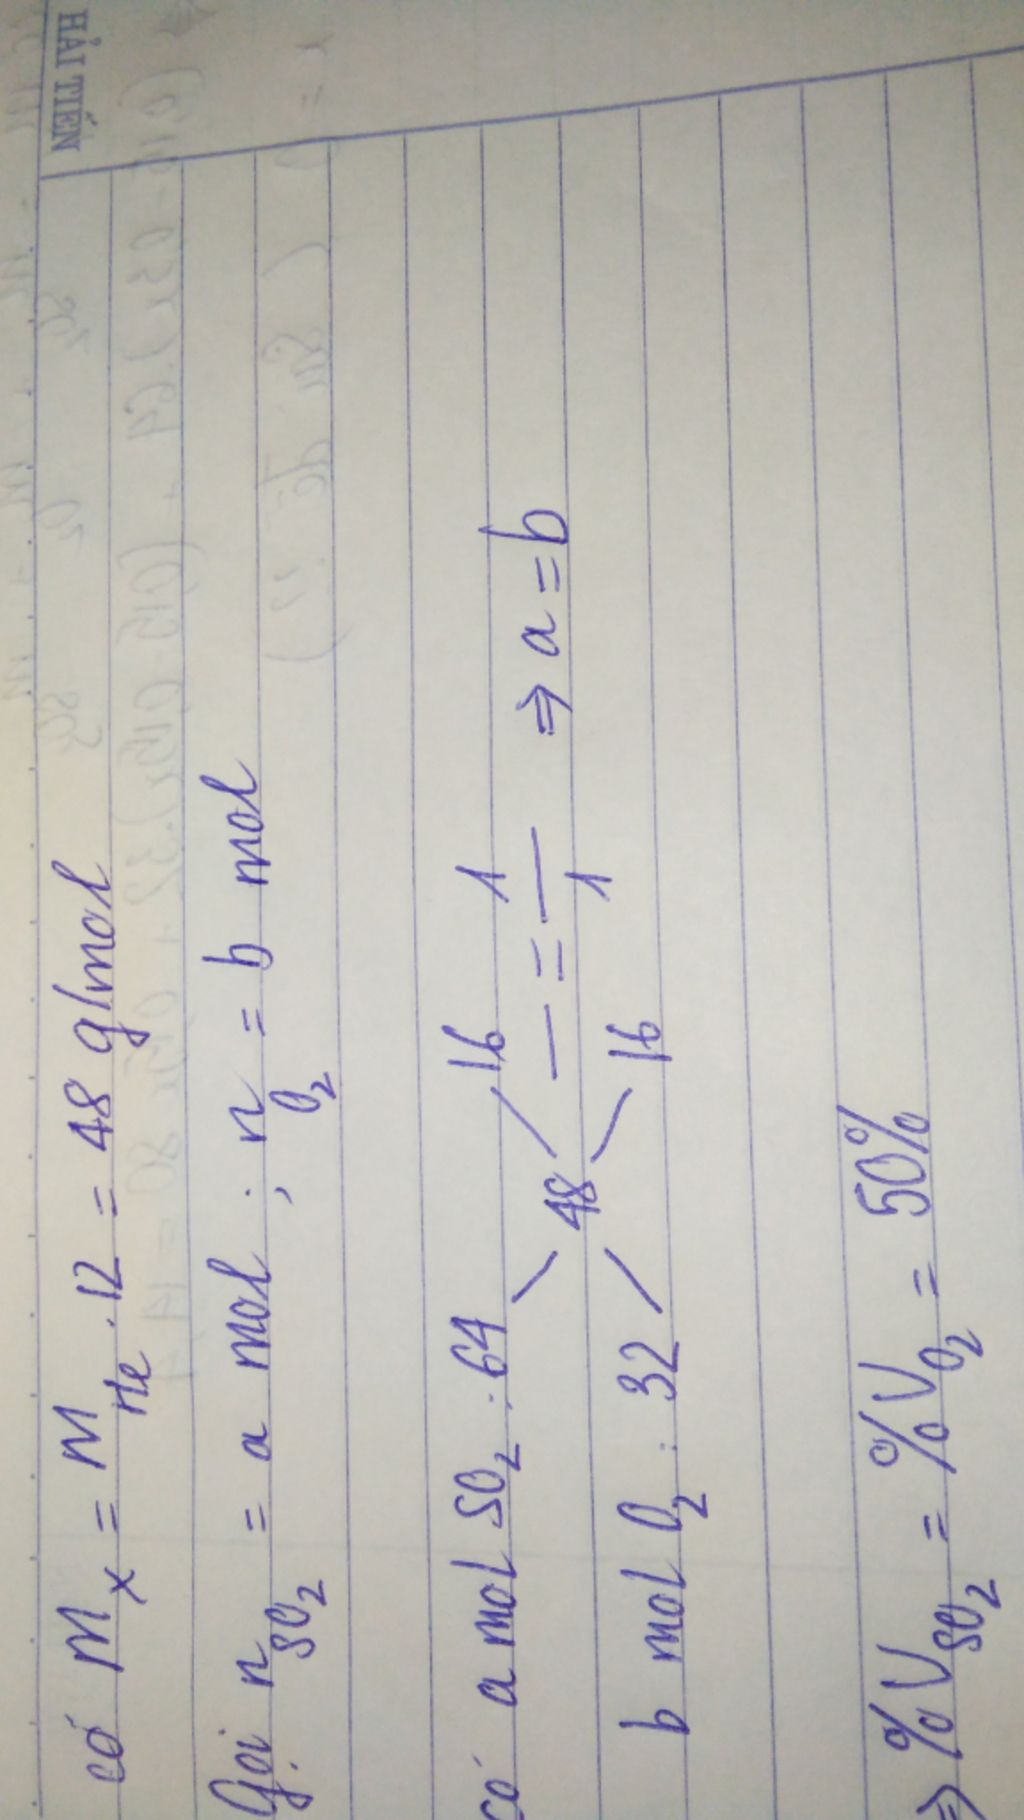 HẢI TIẾN
có M_x = M_He . 12 = 48 g/mol
Gọi n_SO2 = a mol ; n_O2 = b mol
có a mol SO2 : 64 16 1
48 — = — ⇒ a = b
b mol O2 : 32 16 1
⇒ %V_SO2 = %V_O2 = 50%